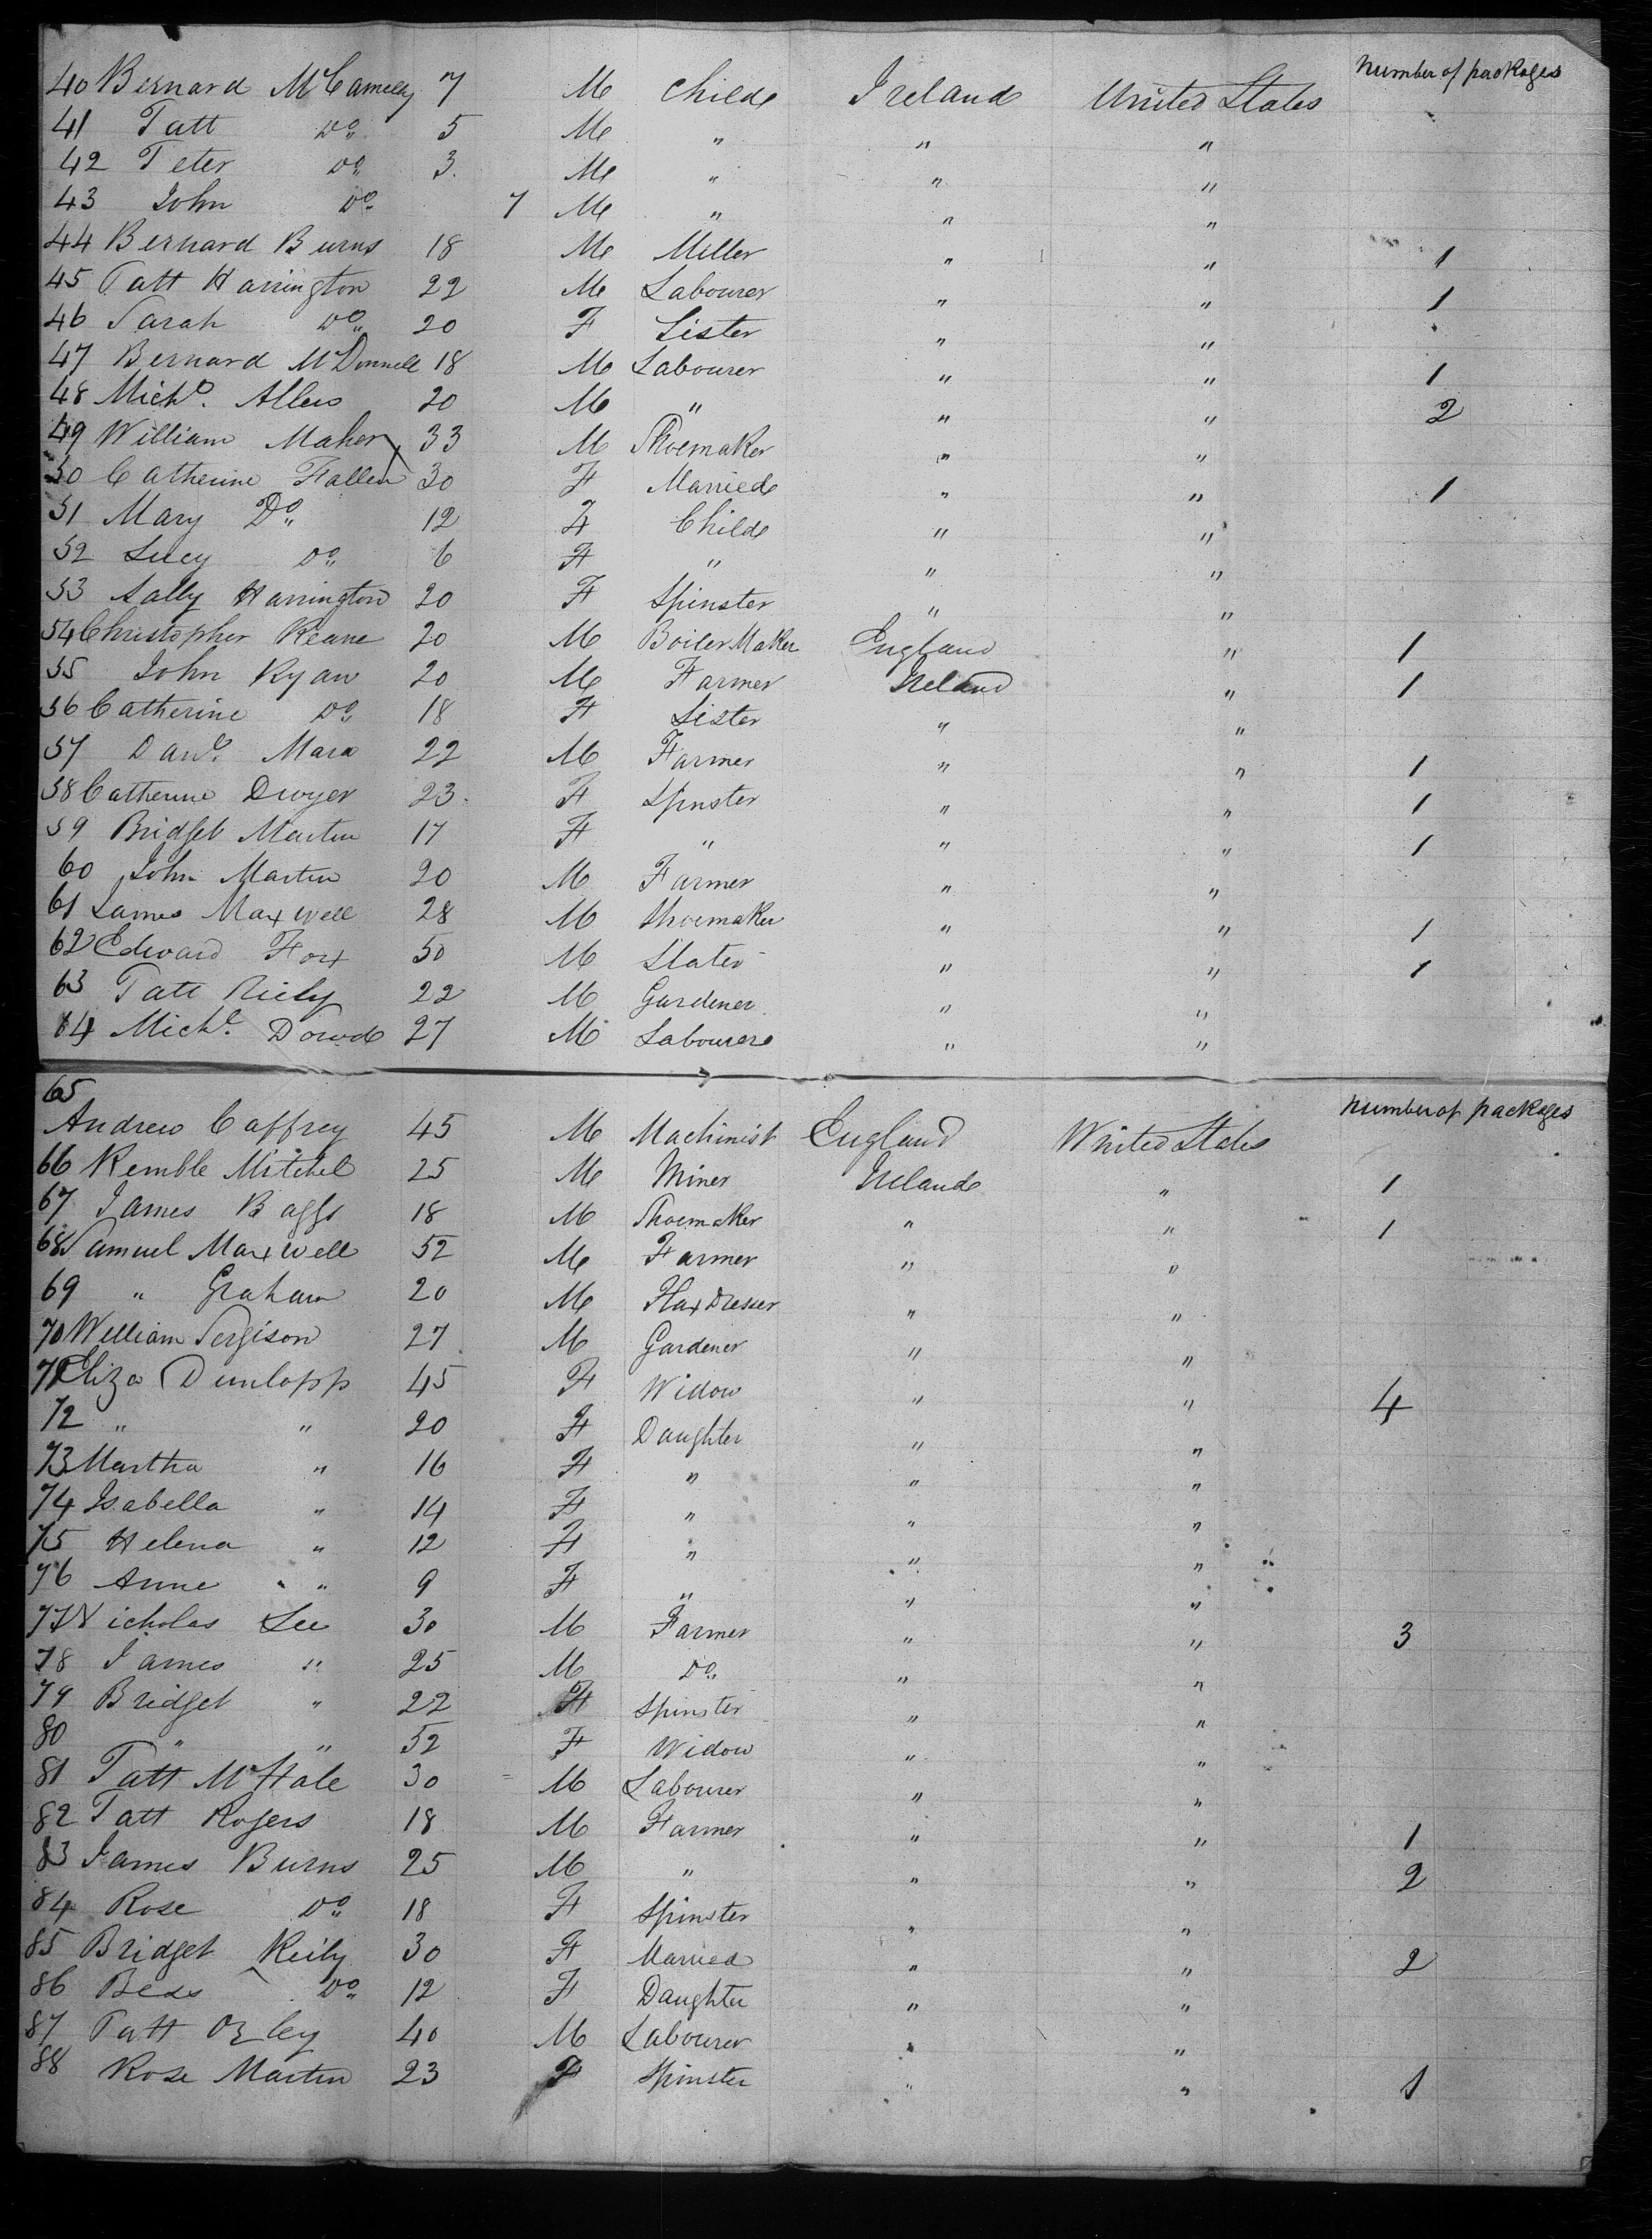 Number of packages
40 Bernard McCamely 7 M Child Ireland United States
41 Patt Do 5 M " " "
42 Peter Do 3 M " " "
43 John Do 7 M " " "
44 Bernard Burns 18 M Miller " " 1
45 Patt Harrington 22 M Labourer " " 1
46 Sarah Do 20 F Sister " "
47 Bernard McDonnell 18 M Labourer " " 1
48 Michl. Allen 20 M " " " 2
49 William Maher 33 M Shoemaker " "
50 Catherine Fallen 30 F Married " " 1
51 Mary Do 12 F Child " "
52 Lucy Do 6 F " " "
53 Sally Harrington 20 F Spinster " "
54 Christopher Keane 20 M Boiler Maker England " 1
55 John Ryan 20 M Farmer Ireland " 1
56 Catherine Do 18 F Sister " "
57 Danl. Mara 22 M Farmer " " 1
58 Catherine Dwyer 23 F Spinster " " 1
59 Bridget Martin 17 F " " " 1
60 John Martin 20 M Farmer " "
61 James Maxwell 28 M Shoemaker " " 1
62 Edward Fox 50 M Slater " " 1
63 Patt Riely 22 M Gardener " "
64 Michl. Dowd 27 M Labourer " "
Number of packages
65
Andrew Caffrey 45 M Machinist England United States
66 Kemble Mitchel 25 M Miner Ireland " 1
67 James Baggs 18 M Shoemaker " " 1
68 Samuel Maxwell 52 M Farmer " "
69 " Graham 20 M Flax Dresser " "
70 William Sergison 27 M Gardener " "
71 Eliza Dunlopp 45 F Widow " " 4
72 " " 20 F Daughter " "
73 Martha " 16 F " " "
74 Isabella " 14 F " " "
75 Helena " 12 F " " "
76 Anne " 9 F " " "
77 Nicholas Lee 30 M Farmer " " 3
78 James " 25 M Do " "
79 Bridget " 22 F Spinster " "
80 " " 52 F Widow " "
81 Patt McHale 30 M Labourer " "
82 Patt Rogers 18 M Farmer " " 1
83 James Burns 25 M " " " 2
84 Rose Do 18 F Spinster " "
85 Bridget Reily 30 F Married " " 2
86 Bess Do 12 F Daughter " "
87 Patt Ozley 40 M Labourer " "
88 Rose Martin 23 F Spinster " " 1